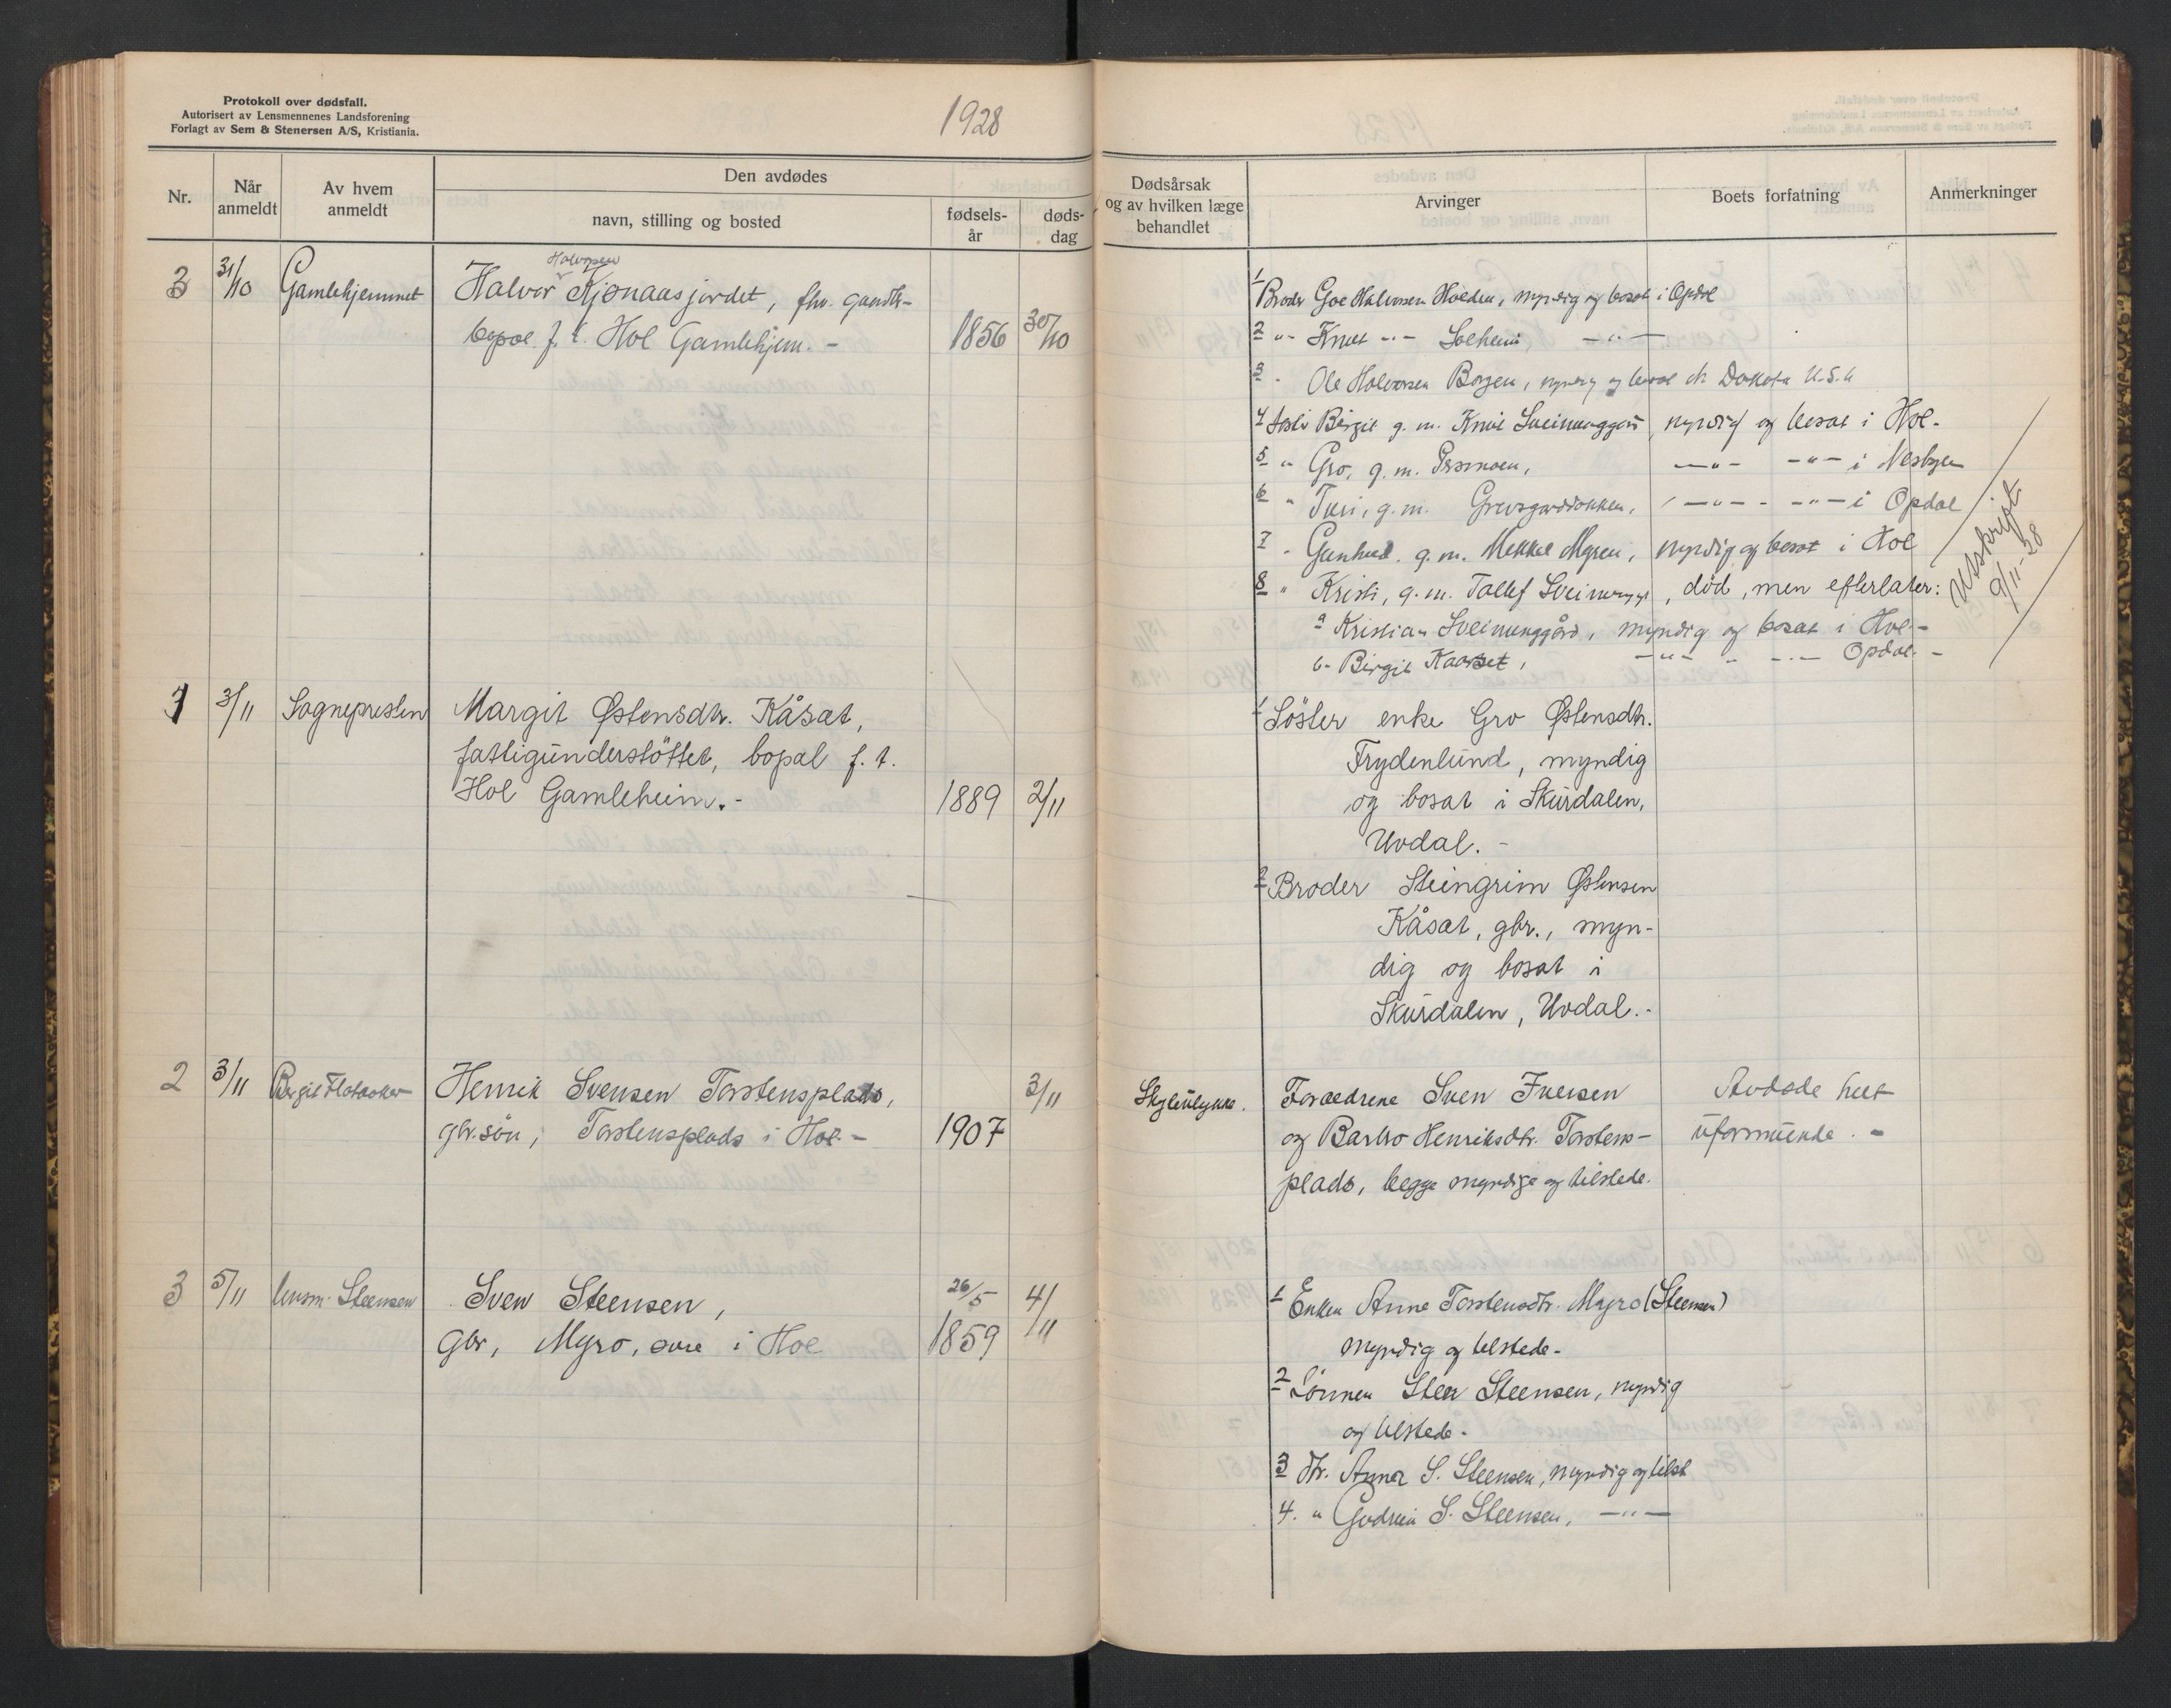 Protokoll over dødsfall.
Autorisert av Lensmennenes Landsforening
Forlagt av Sem & Stenersen A/S, Kristiania.
1928
Nr.
Når anmeldt
Av hvem anmeldt
Den avdødes
navn, stilling og bosted
fødsels-år
døds-dag
Dødsårsak og av hvilken læge behandlet
Arvinger
Boets forfatning
Anmerkninger
3 31/10 Gamlehjemmet
Halvorsen
Halvor Kjønaasjordet, fhv.
bopæl f. t. Hol Gamlehjem. - 1856 30/10
1 Broder Goe Halvorsen Holden, myndig og bosat i Opdal
2 -"- Knut -"- Solheim, -"-
3 - Ole Halvorsen Borgen, myndig og bosat Dakota U.S.A
4 Birgit g. m. Knut Sveinunggård, myndig og bosat i Hol-
5 " Gro, g. m. -"- -"- i Nesbyen
6 " Turi, g. m. -"- -"- i Opdal
7 - Gunhild, g. m. Mekkel Myren, myndig og bosat i Hol
8 " Kristi, g. m. Tollef Sveinungg., død, men efterlater:
a Kristian Sveinunggård, myndig og bosat i Hol.-
b- Birgit Kaaset, -"- " -"- Opdal.-
Utskrift
9/11-28
1 3/11 Sognepresten
Margit Østensdtr. Kåsat,
fattigunderstöttet, bopæl f. t.
Hol Gamleheim.- 1889 2/11
1 Söster enke Gro Østensdtr.
Frydenlund, myndig
og bosat i Skurdalen,
Uvdal. -
2 Broder Steingrim Østensen
Kåsat, gbr., myn-
dig og bosat i
Skurdalen, Uvdal.-
2 3/11 Birgit Flataaker
Henrik Svensen Torstensplads,
gbr.sön, Torstensplads i Hol.- 1907 3/11
Forældrene Sven Iversen
og Barbro Henriksdtr. Torstens-
plads, begge myndige og tilstede.
Avdøde helt
uformuende. -
3 5/11 lensm. Steensen
Sven Steensen,
gbr, Myro, øvre i Hol 26/5 1859 4/11
1 Enken Anne Torstensdtr. Myro (Steensen)
myndig og tilstede-
2 Sönnen Sten Steensen, myndig
og tilstede-
3 dtr. Anna S. Steensen, myndig og tilst
4. " Gudrun S. Steensen, -"-